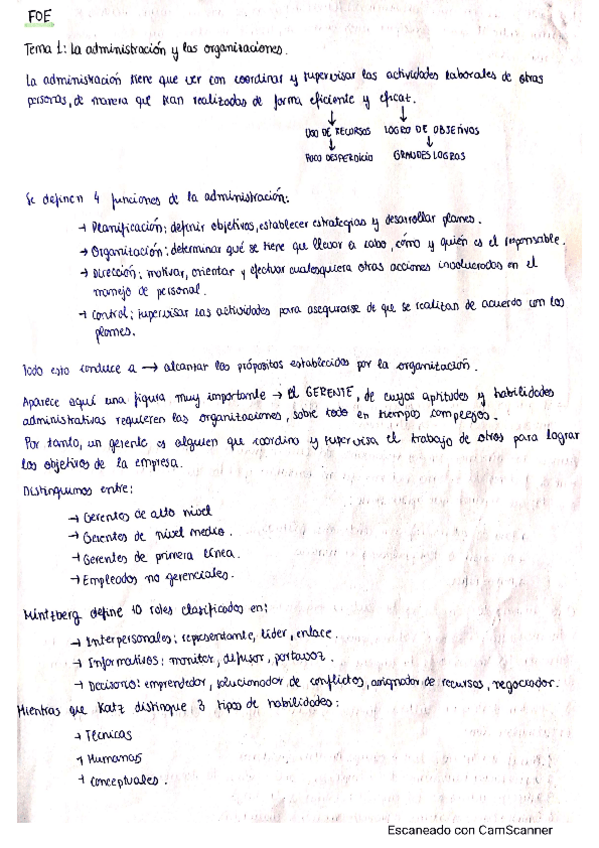 FOE
Tema 1: La administración y las organizaciones.
La administración tiene que ver con coordinar y supervisar las actividades laborales de otras
personas, de manera que sean realizadas de forma eficiente y eficaz.
↓ ↓
USO DE RECURSOS LOGRO DE OBJETIVOS
↓ ↓
POCO DESPERDICIO GRANDES LOGROS
Se definen 4 funciones de la administración:
→ Planificación: definir objetivos, establecer estrategias y desarrollar planes.
→ Organización: determinar qué se tiene que llevar a cabo, cómo y quién es el responsable.
→ Dirección: motivar, orientar y efectuar cualesquiera otras acciones involucradas en el
manejo de personal.
→ Control: supervisar las actividades para asegurarse de que se realizan de acuerdo con los
planes.
Todo esto conduce a → alcanzar los própositos establecidos por la organización.
Aparece aquí una figura muy importante → El GERENTE, de cuyas aptitudes y habilidades
administrativas requieren las organizaciones, sobre todo en tiempos complejos.
Por tanto, un gerente es alguien que coordina y supervisa el trabajo de otros para lograr
los objetivos de la empresa.
Distinguimos entre:
→ Gerentes de alto nivel
→ Gerentes de nivel medio.
→ Gerentes de primera línea.
→ Empleados no gerenciales.
Mintzberg define 10 roles clasificados en:
→ Interpersonales: representante, líder, enlace.
→ Informativos: monitor, difusor, portavoz.
→ Decisorio: emprendedor, solucionador de conflictos, asignador de recursos, negociador.
Mientras que Katz distingue 3 tipos de habilidades:
→ Técnicas
→ Humanas
→ Conceptuales.
Escaneado con CamScanner